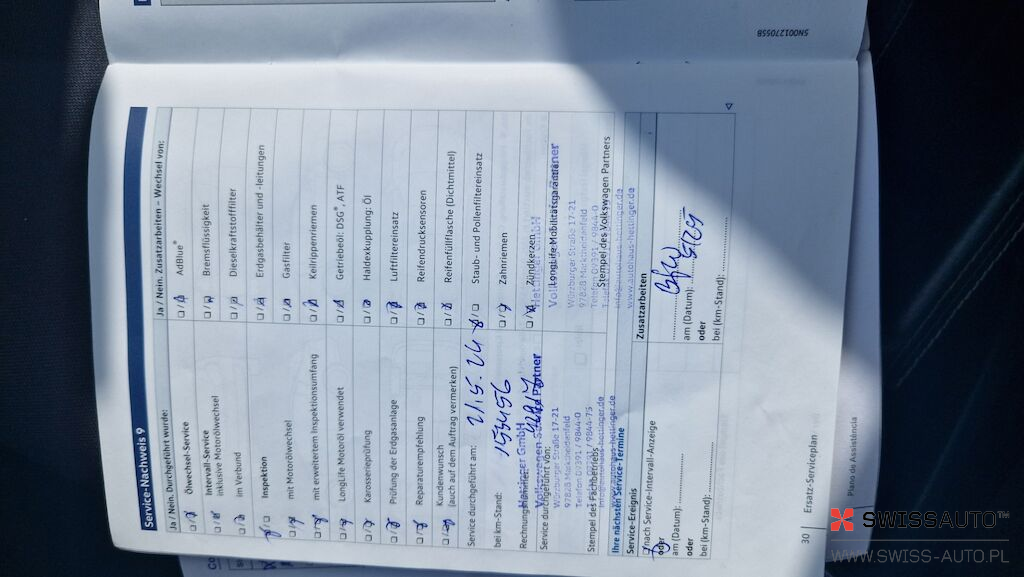 Service-Nachweis 9
Ja / Nein. Durchgeführt wurde:
Ölwechsel-Service
Intervall-Service
inklusive Motorölwechsel
im Verbund
Inspektion
mit Motorölwechsel
mit erweitertem Inspektionsumfang
LongLife Motoröl verwendet
Karosserieprüfung
Prüfung der Erdgasanlage
Reparaturempfehlung
Kundenwunsch
(auch auf dem Auftrag vermerken)
Ja / Nein. Zusatzarbeiten – Wechsel von:
AdBlue®
Bremsflüssigkeit
Dieselkraftstofffilter
Erdgasbehälter und -leitungen
Gasfilter
Keilrippenriemen
Getriebeöl: DSG®, ATF
Haldexkupplung: Öl
Luftfiltereinsatz
Reifendrucksensoren
Reifenfüllflasche (Dichtmittel)
Staub- und Pollenfiltereinsatz
Zahnriemen
Zündkerzen
LongLife-Mobilitätsgarantie
Service durchgeführt am:
bei km-Stand: 153456
Rechnungsnummer:
Service durchgeführt von:
Hettinger GmbH
Volkswagen Service Partner
Würzburger Straße 17-21
97828 Marktheidenfeld
Stempel des Fachbetriebs
Hettinger GmbH
Würzburger Straße 17-21
97828 Marktheidenfeld
Stempel des Volkswagen Partners
info@autohaus-hettinger.de
www.autohaus-hettinger.de
Ihre nächsten Service-Termine
Service-Ereignis
nach Service-Intervall-Anzeige
oder
am (Datum):
oder
bei (km-Stand):
Zusatzarbeiten
am (Datum):
oder
bei (km-Stand):
30
Ersatz-Serviceplan
Plano de Assistência
5N0012705SB
SWISSAUTO™
WWW.SWISS-AUTO.PL